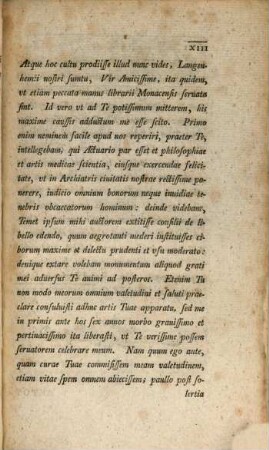 XIII
Atque hoc cultu prodiisse illud nunc vides, Langou-
hemii nostri sumtu, Vir Amicissime, ita quidem,
vt etiam peccata manus librarii Monacensis seruata
sint. Id vero vt ad Te potissimum mitterem, his
maxime caussis adductum me esse scito. Primo
enim neminem facile apud nos reperiri, praeter Te,
intellegebam, qui Actuario par esset et philosophiae
et artis meditat scientia, eiusque exercendae felici-
tate, vt in Archiatris ciuitatis nostrae rectissime po-
nerere, iudicio omnium bonorum neque inuidiae te-
nebris obcaecatorum hominum: deinde videbam,
Temet ipsum mihi auctorem extitisse consilii de li-
bello edendo, quum aegrotanti mederi instituisses ci-
borum maxime et delectu prudenti et vsu moderato:
denique extare volebam monumentum aliquod grati
mei aduersus Te animi ad posteros. Etenim Tu
non modo meorum omnium valetudini et saluti prae-
clare consuluisti adhuc artis Tuae apparatu, sed me
in primis ante hos sex annos morbo grauissimo et
pertinacissimo ita liberasti, vt Te verissime possem
seruatorem celebrare meum. Nam quum ego ante,
quam curae Tuae commisissem meam valetudinem,
etiam vitae spem omnem abiecissem; paullo post so-
lertia